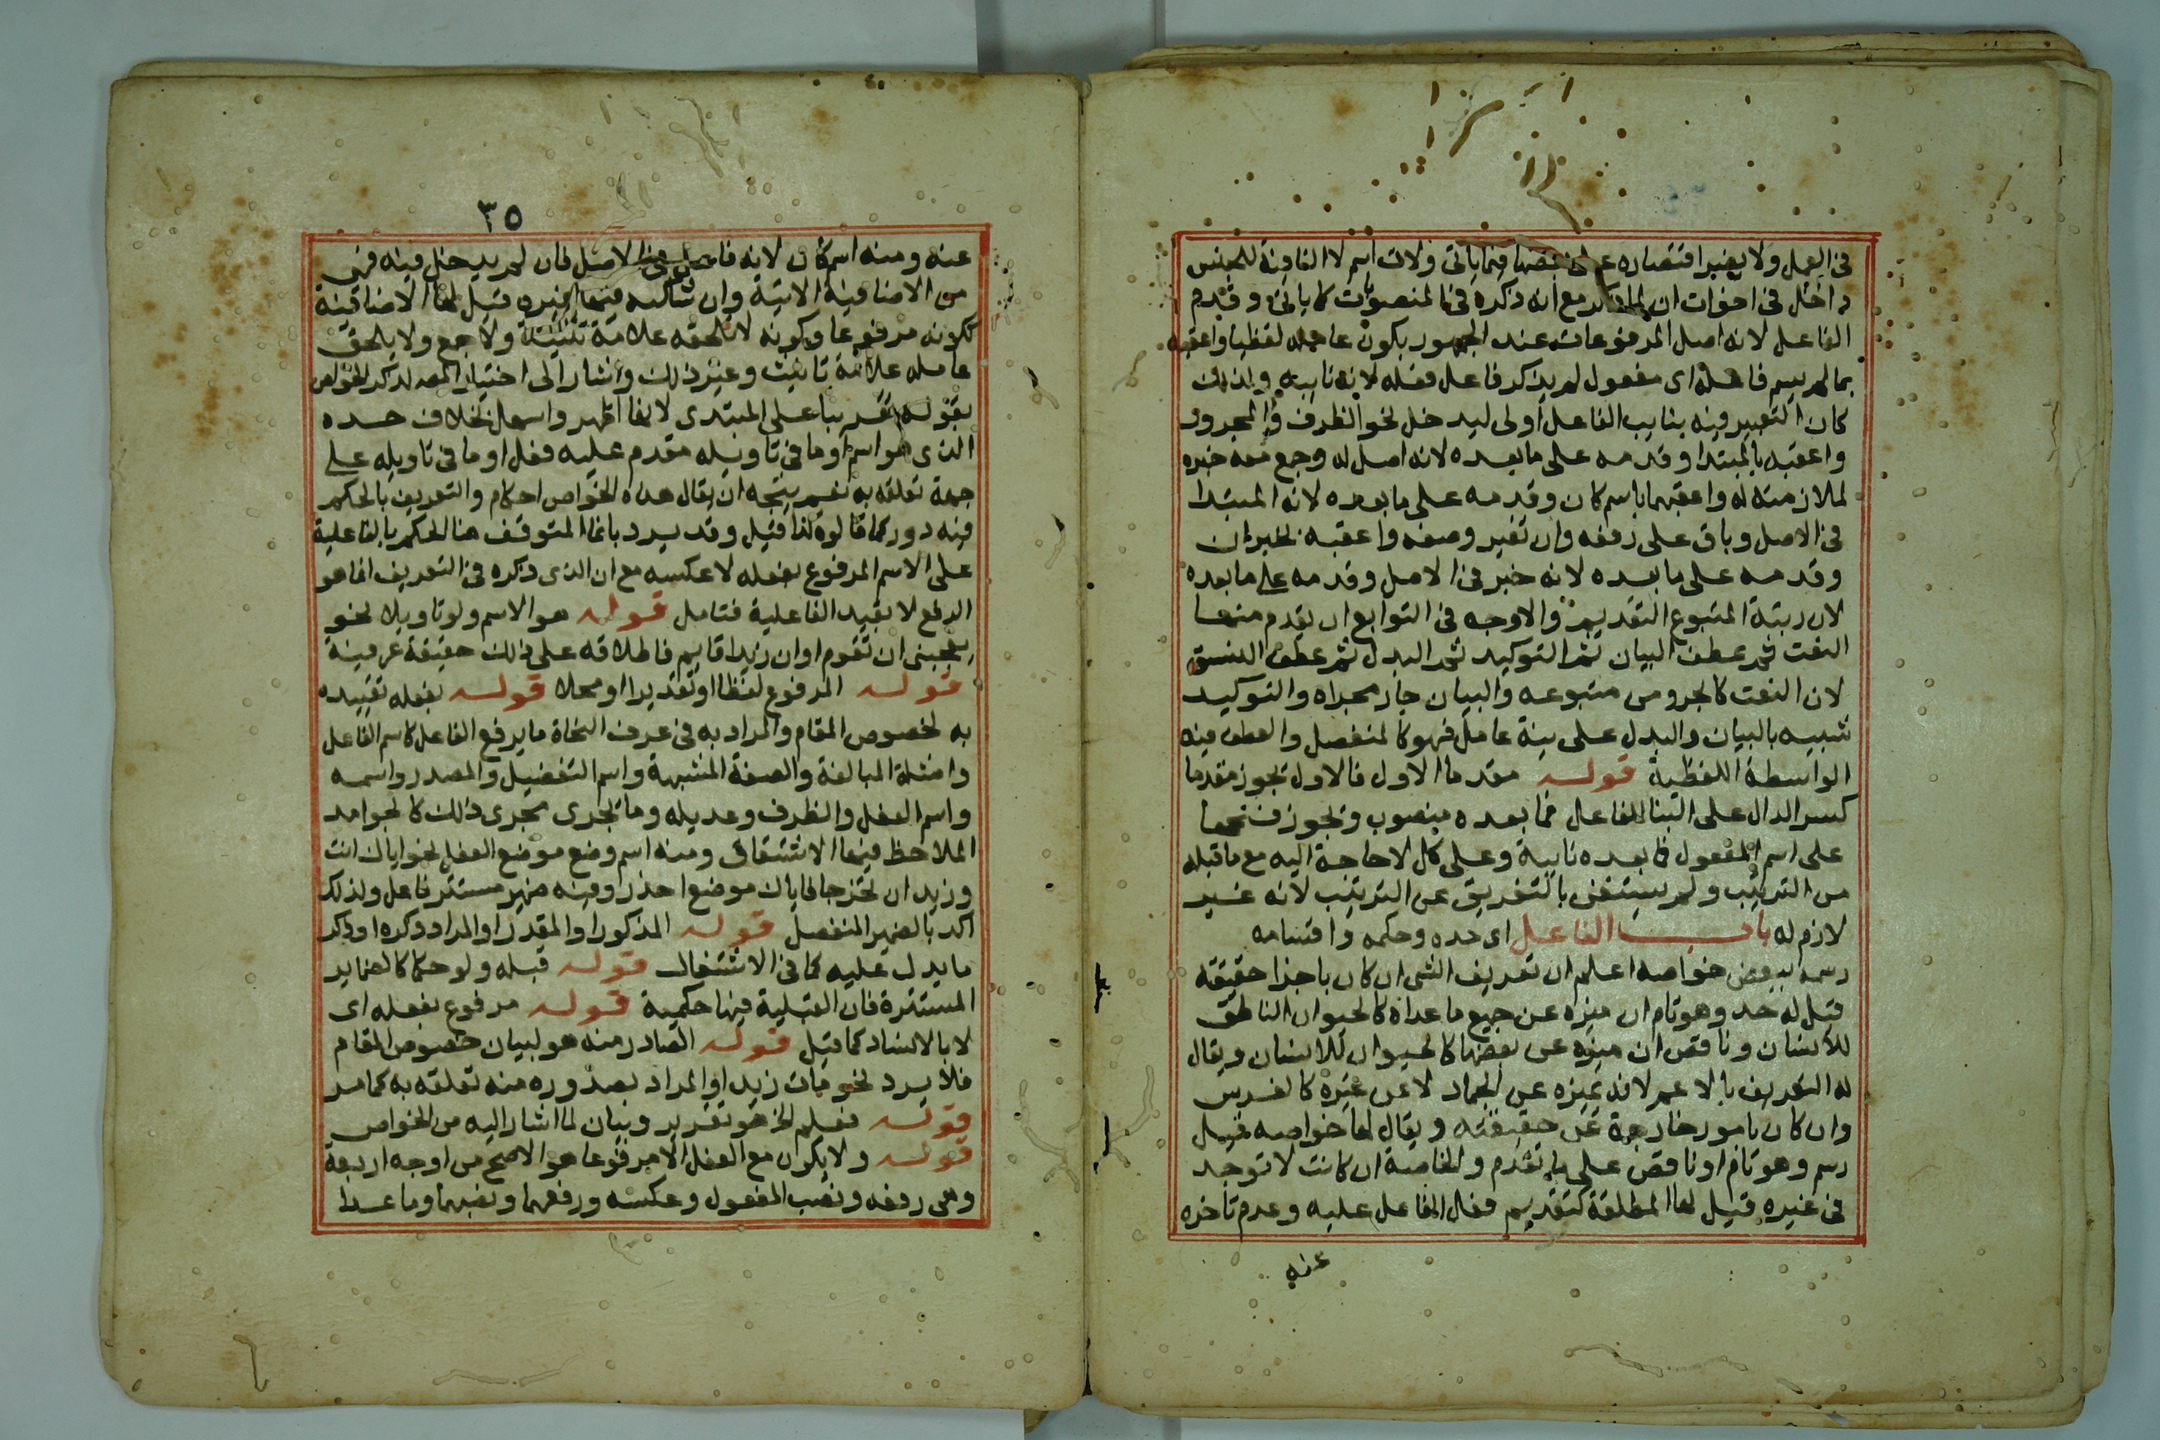 في العمل ولا يضر اقتصاره على بعضها فيما ياتي ولات اسم لا النافية للجنس
داخل في اخوات ان لما ذكر مع انه ذكره في المنصوبات كما ياتي وقدم
الفاعل لانه اصل المرفوعات عند الجمهور بكون عامله لفظيا واعقبه
بما لم يسم فاعله اى مفعول لم يذكر فاعل فعله لانه نايبه ولذلك
كان التعبير فيه بنايب الفاعل اولى ليدخل نحو الظرف والمجرور
واعقبه بالمبتدا وقدمه على ما بعده لانه اصل له وجمع معه خبره
لملازمته له واعقبهما باسم كان وقدمه على ما بعده لانه المبتدا
في الاصل وباق على رفعه وان تغير وصفه واعقبه بخبر ان
وقدمه على ما بعده لانه خبر في الاصل وقدمه على ما بعده
لان رتبة المتبوع التقديم والاوجه في التوابع ان يقدم منها
النعت ثم عطف البيان ثم التوكيد ثم البدل ثم عطف النسق
لان النعت كالجزو من متبوعه والبيان جار مجراه والتوكيد
شبيه بالبيان والبدل على نية عامل فهو كالمنفصل والعطف فيه
الواسطة اللفظية قوله مقدما الاول فالاول يجوز مقدما
كسر الدال على البنا للفاعل فما بعده منصوب ويجوز فتحها
على اسم المفعول فما بعده نايبه وعلى كل لا حاجة اليه مع ما قبله
من الترتيب ولم يستغن بالتفريق عن الترتيب لانه غير
لازم له باب الفاعل اى حده وحكمه واقسامه
رسمه ببعض خواصه اعلم ان تعريف الشى ان كان باجزا حقيقته
قيل له حد وهو تام ان ميزه عن جميع ما عداه كالحيوان الناطق
للانسان وناقص ان ميزه عن بعضها كالحيوان للانسان ويقال
له التعريف بالاعم لانه يميزه عن الجماد لا عن غيره كالفرس
وان كان بامور خارجة عن حقيقته ويقال لها خواصه قيل
رسم وهو تام او ناقص على ما تقدم والخاصة ان كانت لا توجد
في غيره قيل لها المطلقة كتقديم فعل الفاعل عليه وعدم تاخره
عنه
٣٥
عنه ومنه اسم كان لانه فاعل في الاصل فان لم يدخل فيه فهي
من الاضافية الاتية وان شاركه فيها غيره قيل لها الاضافية
ككونه مرفوعا وكونه لا تلحقه علامة تثنية ولا جمع ولا يلحق
عامله علامة تانيث وغير ذلك واشار الى اختيار المص لذكر الخواص
بقوله تقريبا على المبتدى لانها اظهر واسهل بخلاف حده
الذى هو اسم او ما في تاويله مقدم عليه فعل او ما في تاويله على
جهة تعلقه به نعم يتجه ان يقال هذه الخواص احكام والتعريف بالحكم
فيه دور كما قالوه كذا قيل وقد يرد بانما المتوقف هنا الحكم بالفاعلية
على الاسم المرفوع بفعله لا عكسه مع ان الذى ذكره في التعريف انما هو
الرفع لا بقيد الفاعلية فتامل قوله هو الاسم ولو تاويلا نحو
يعجبني ان تقوم او ان زيدا قايم فاطلاقه على ذلك حقيقة عرفية
قوله المرفوع لفظا او تقديرا او محلا قوله بفعله تقييده
به لخصوص المقام والمراد به في عرف النحاة ما يرفع الفاعل كاسم الفاعل
وامثلة المبالغة والصفة المشبهة واسم التفضيل والمصدر واسمه
واسم الفعل والظرف وعديله وما يجرى مجرى ذلك كالجوامد
الملاحظ فيها الاشتقاق ومنه اسم وضع موضع الفعل نحو اياك انت
وزيد ان تخرجا فاياك موضع احذر وفيه ضمير مستتر فاعل ولذلك
اكد بالضمير المنفصل قوله المذكور او المقدر او المراد ذكره او ذكر
ما يدل عليه كما في الاشتغال قوله قبله ولو حكما كالضماير
المستترة فان القبلية فيها حكمية قوله مرفوع بفعله اى
لا بالاسناد كما قيل قوله الصادر منه هو لبيان خصوص المقام
فلا يرد نحو مات زيد او المراد بصدوره منه تعلقه به كما مر
قوله فعلم الخ هو تقرير وبيان لما اشار اليه من الخواص
قوله ولا يكون مع الفعل الا مرفوعا هو الاصح من اوجه اربعة
وهي رفعه ونصب المفعول وعكسه ورفعهما ونصبهما وما عدا